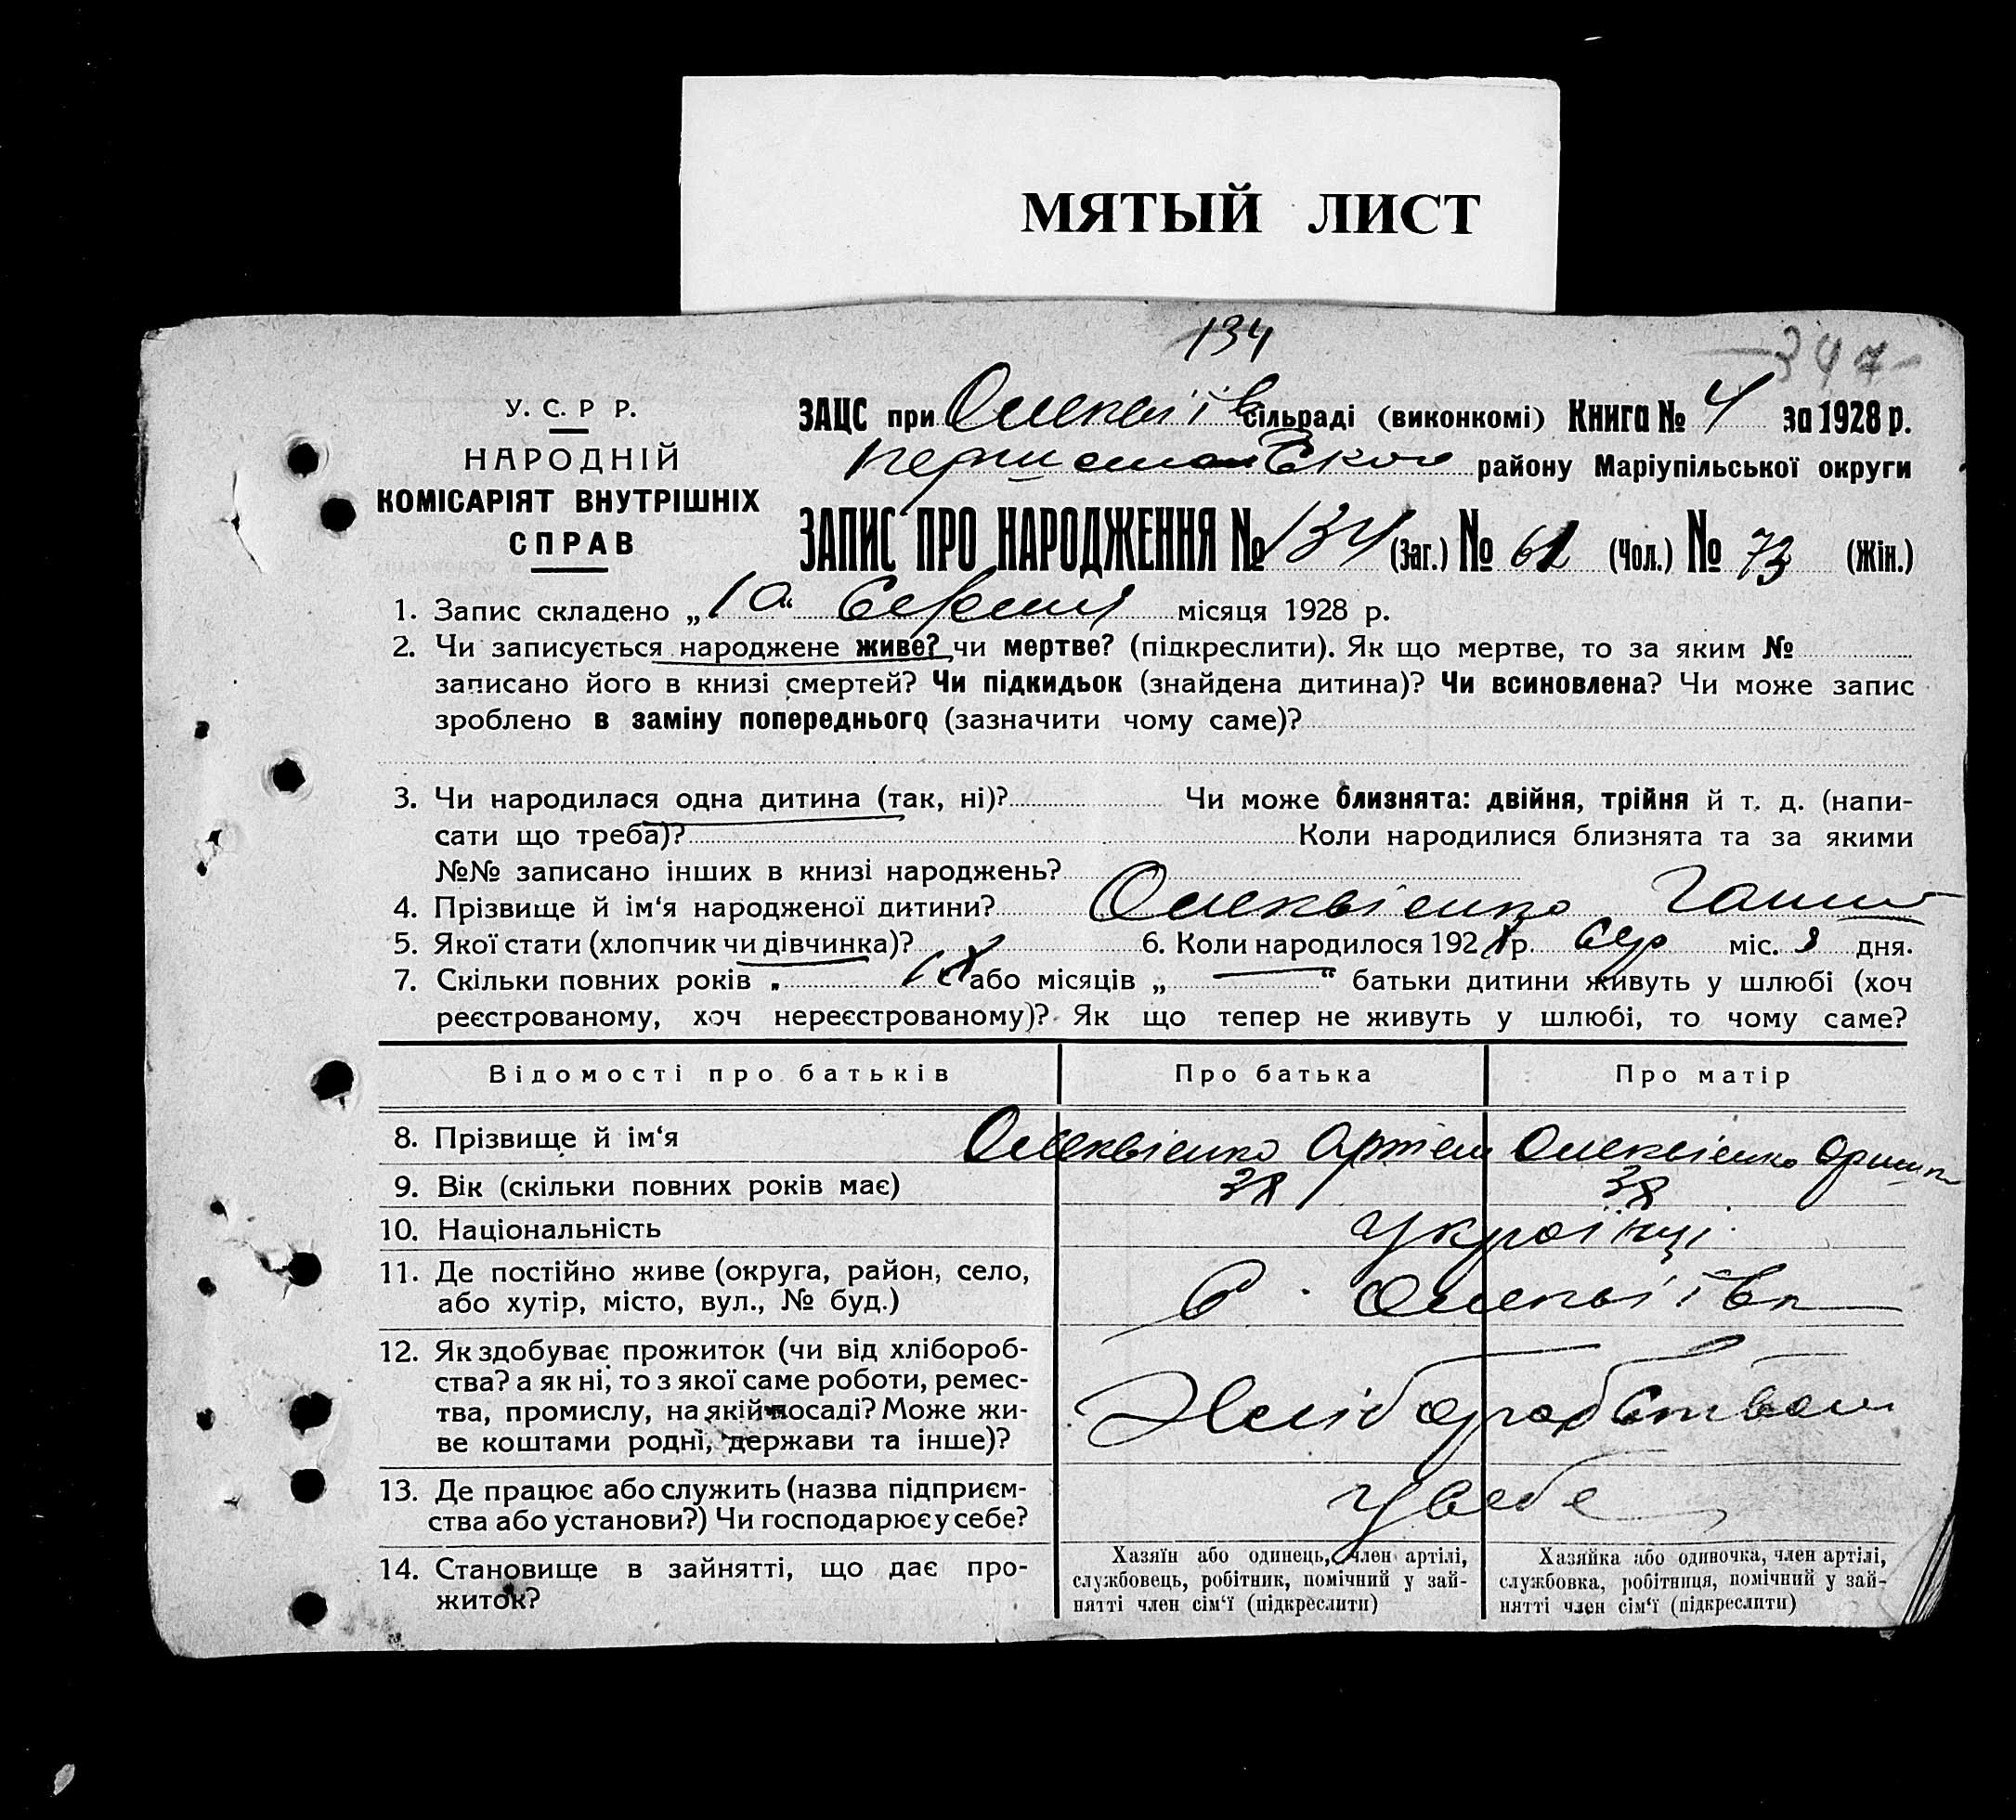 МЯТЫЙ ЛИСТ
134
347
У. С. Р Р.
НАРОДНІЙ
КОМІСАРІЯТ ВНУТРІШНІХ
СПРАВ
ЗАЦС при сільраді (виконкомі) Книга № 4 за 1928 р.
району Маріупільської округи
ЗАПИС ПРО НАРОДЖЕННЯ № 134 (Заг.) № 61 (Чол.) № 73 (Жін.)
1. Запис складено „10“ Серпня місяця 1928 р.
2. Чи записується народжене живе? чи мертве? (підкреслити). Як що мертве, то за яким №
записано його в книзі смертей? Чи підкидьок (знайдена дитина)? Чи всиновлена? Чи може запис
зроблено в заміну попереднього (зазначити чому саме)?
3. Чи народилася одна дитина (так, ні)? Чи може близнята: двійня, трійня й т. д. (напи-
сати що треба)? Коли народилися близнята та за якими
№№ записано інших в книзі народжень?
4. Прізвище й ім‘я народженої дитини? Олексієнко Ганна
5. Якої стати (хлопчик чи дівчинка)? 6. Коли народилося 1928 р. Сер міс. дня.
7. Скільки повних років „ 18 або місяців „ — “ батьки дитини живуть у шлюбі (хоч
реєстрованому, хоч нереєстрованому)? Як що тепер не живуть у шлюбі, то чому саме?
Відомості про батьків Про батька Про матір
8. Прізвище й ім‘я Олексієнко Артем Олексієнко Орина
9. Вік (скільки повних років має) 38 38
10. Національність Українці
11. Де постійно живе (округа, район, село,
або хутір, місто, вул., № буд.) С. Олексіївка
12. Як здобуває прожиток (чи від хлібороб-
ства? а як ні, то з якої саме роботи, ремес-
тва, промислу, на якій посаді? Може жи-
ве коштами родні, держави та інше)? Хліборобством
13. Де працює або служить (назва підприєм-
ства або установи?) Чи господарює у себе? У себе
14. Становище в зайнятті, що дає про-
житок?
Хазяїн або одинець, член артілі,
службовець, робітник, помічний у зай-
нятті член сім‘ї (підкреслити)
Хазяйка або одиночка, член артілі,
службовка, робітниця, помічний у зай-
нятті член сім‘ї (підкреслити)